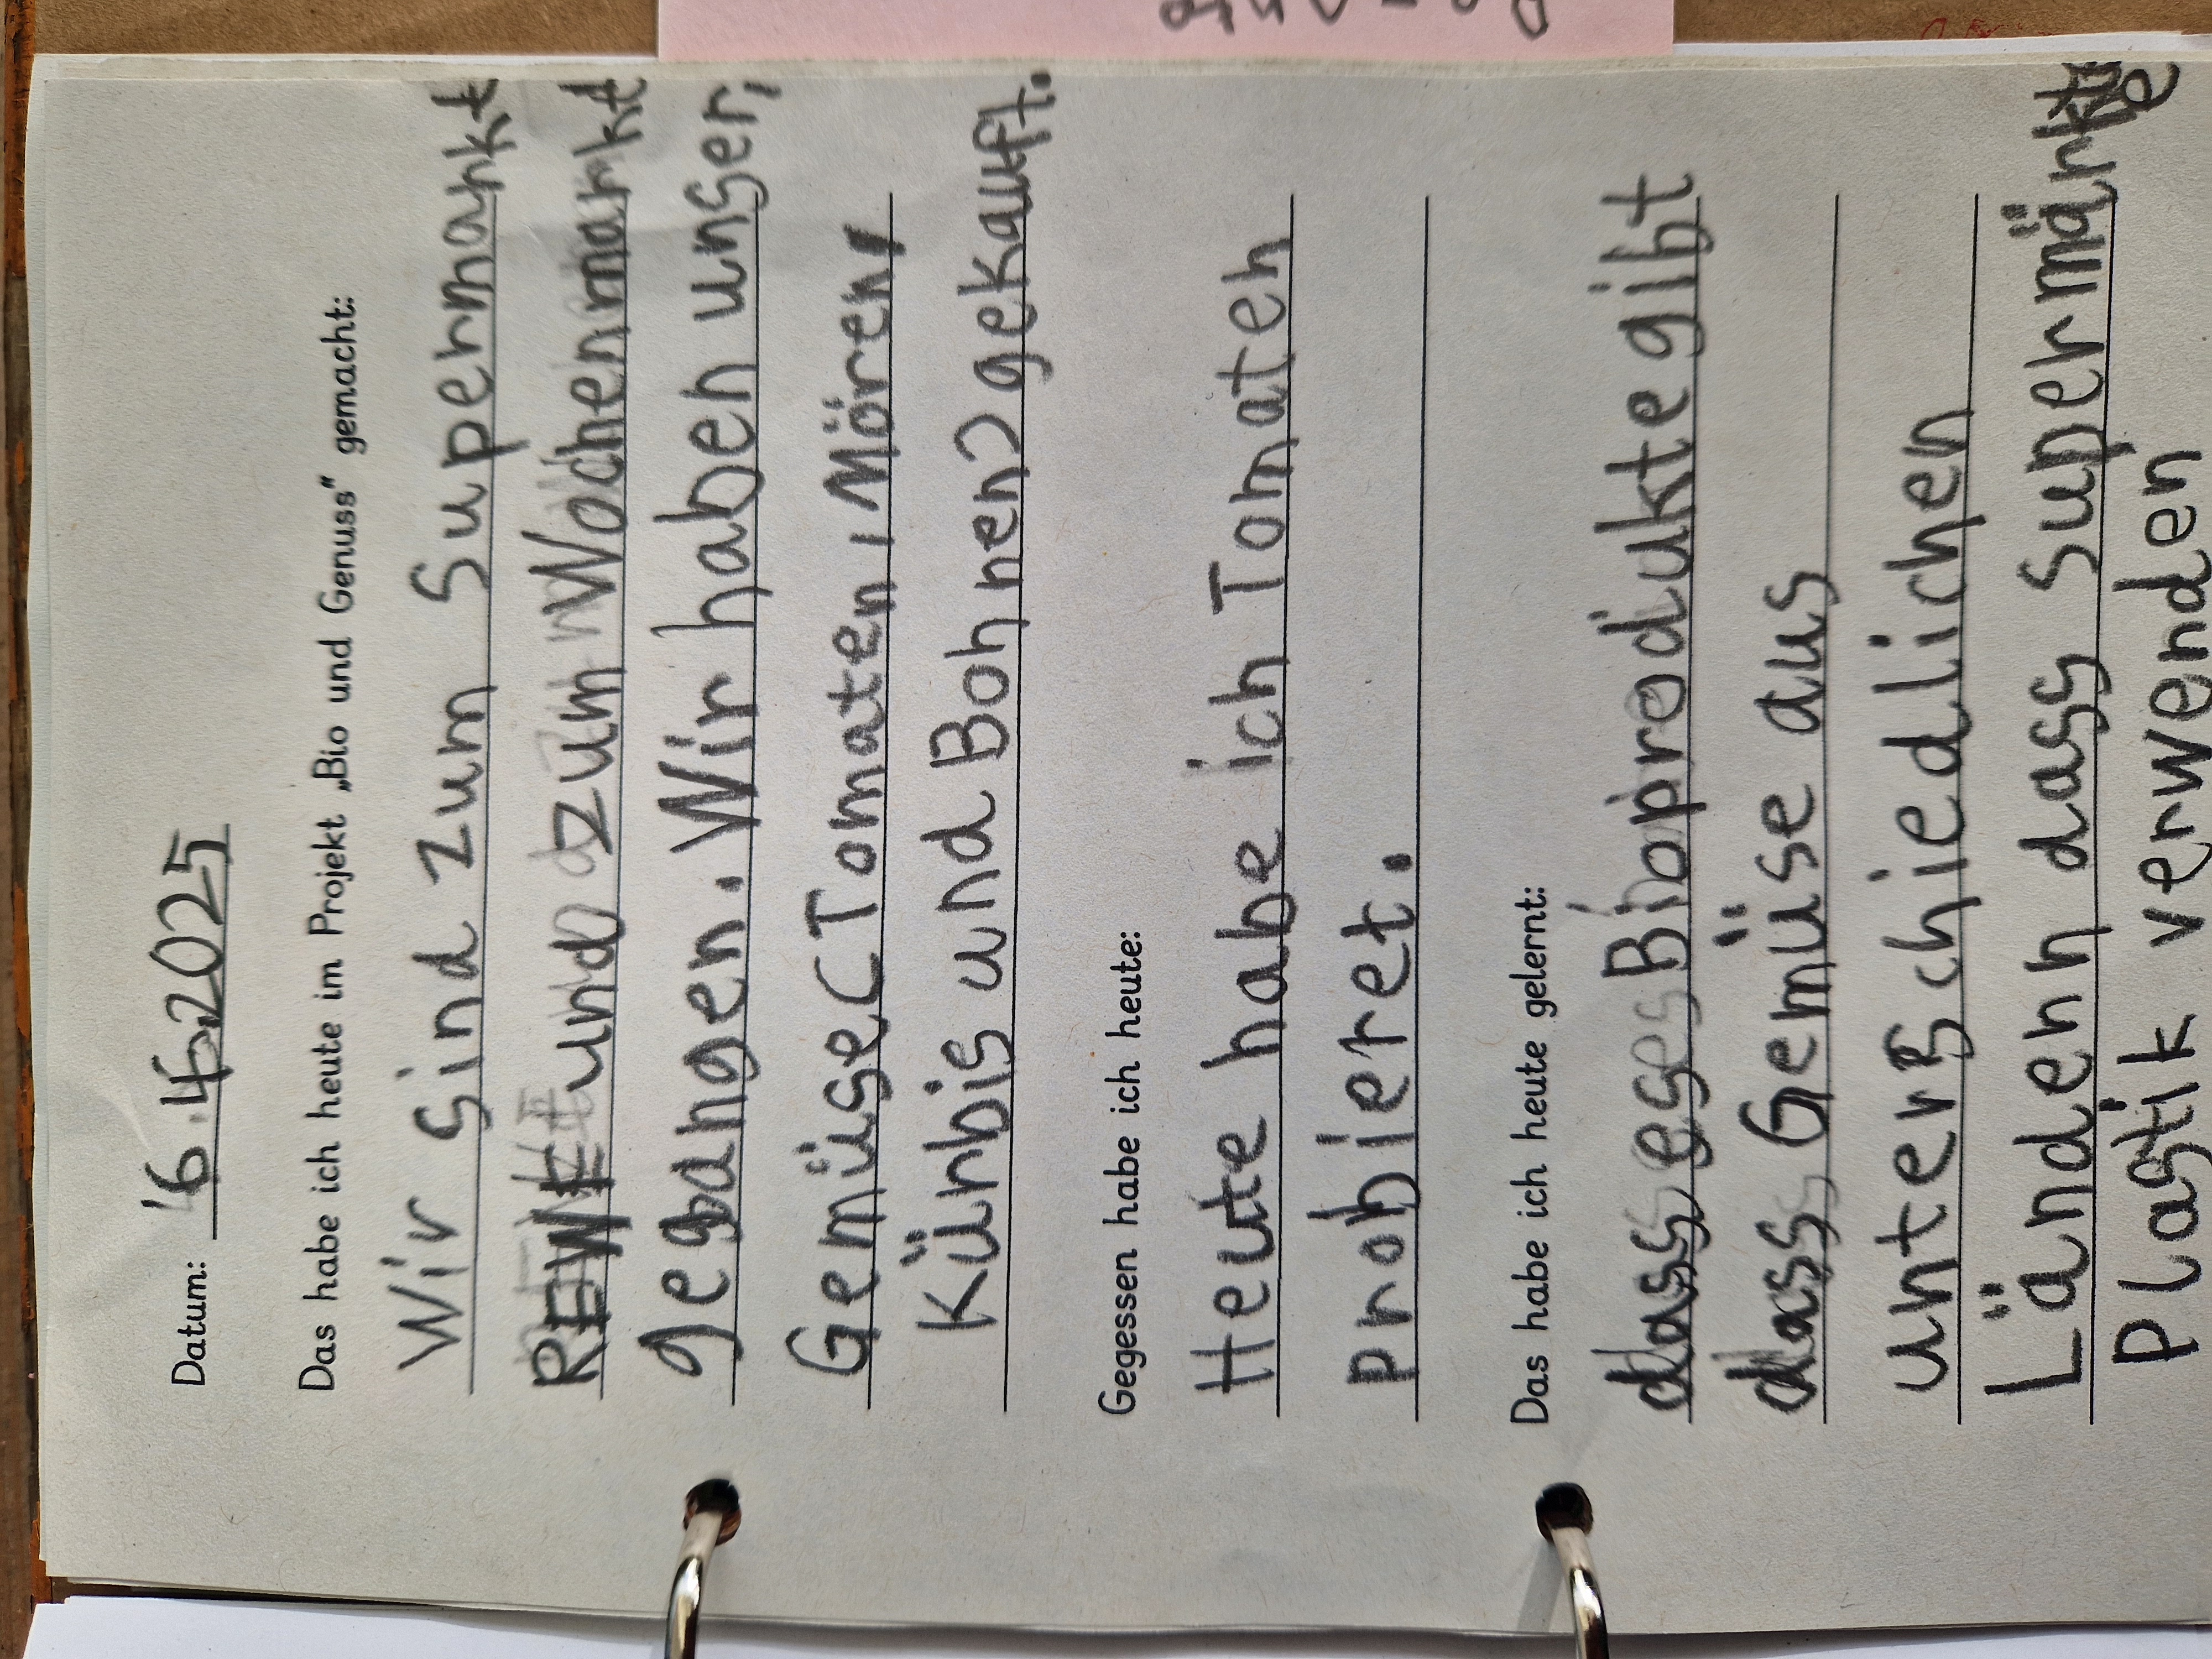 Datum: 6.4.2025
Das habe ich heute im Projekt „Bio und Genuss" gemacht:
Wir sind zum Supermarkt
REWE und zum Wochenmarkt
gegangen. Wir haben unser,
Gemüse (Tomaten, Mören,
Kürbis und Bohnen) gekauft.
Gegessen habe ich heute:
Heute habe ich Tomaten
probieret.
Das habe ich heute gelernt:
dass es Bioprodukte gibt
dass Gemüse aus
unterschiedlichen
Ländern dass Supermärkte
Plastik verwenden